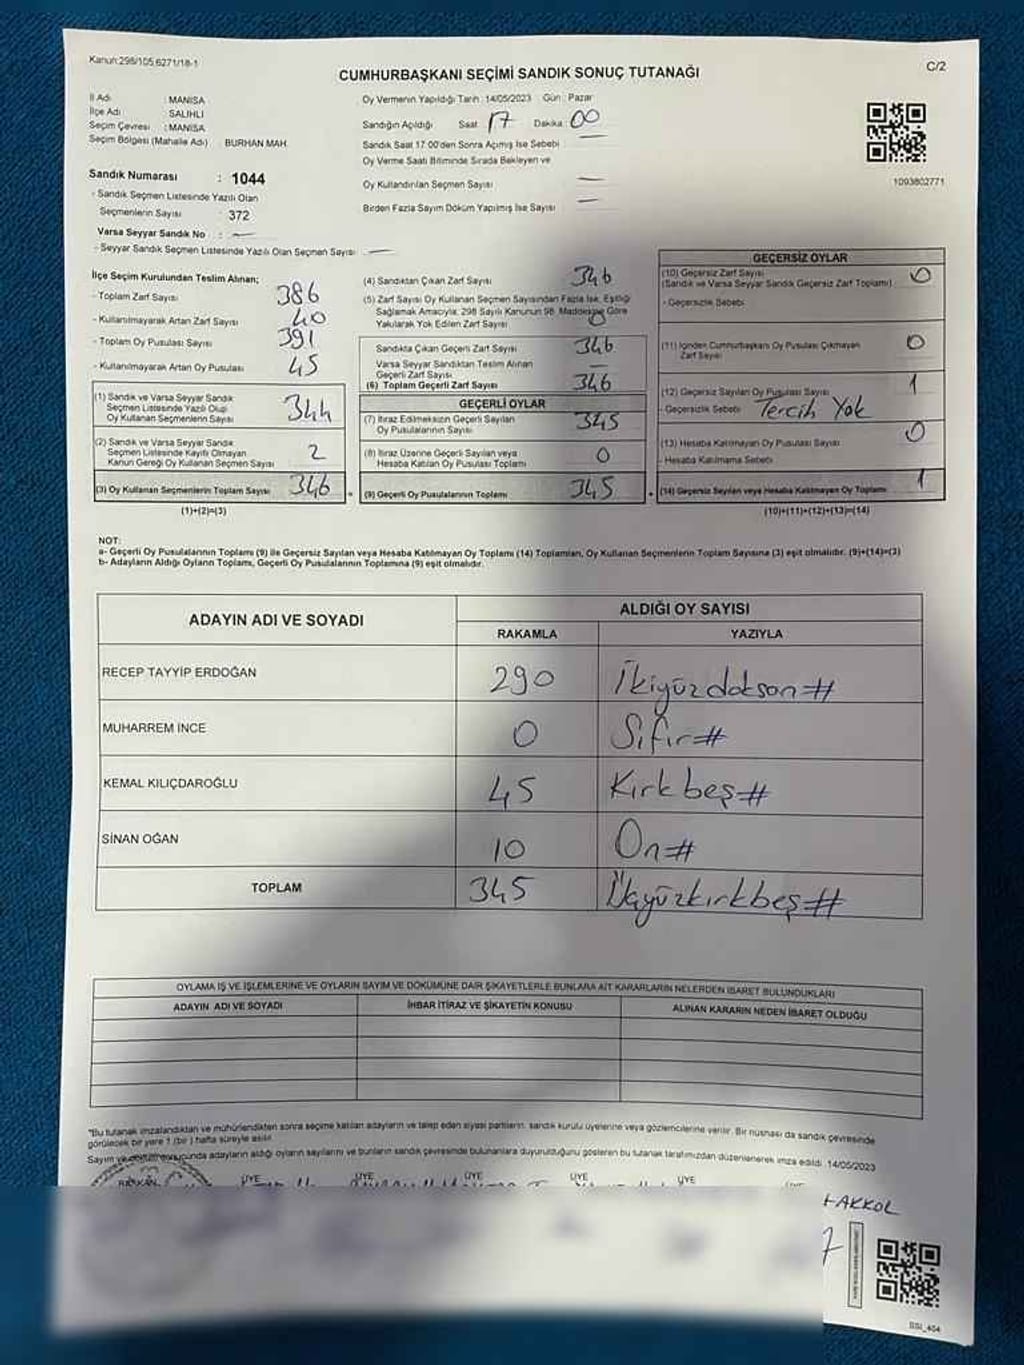 Kanun:298/105,6271/18-1
C/2
CUMHURBAŞKANI SEÇİMİ SANDIK SONUÇ TUTANAĞI
İl Adı : MANİSA
İlçe Adı : SALİHLİ
Seçim Çevresi : MANİSA
Seçim Bölgesi (Mahalle Adı) BURHAN MAH.
Sandık Numarası : 1044
- Sandık Seçmen Listesinde Yazılı Olan
Seçmenlerin Sayısı : 372
Varsa Seyyar Sandık No : —
- Seyyar Sandık Seçmen Listesinde Yazılı Olan Seçmen Sayısı : —
Oy Vermenin Yapıldığı Tarih :14/05/2023 Gün : Pazar
Sandığın Açıldığı Saat : 17 Dakika : 00
Sandık Saat 17:00'den Sonra Açmış İse Sebebi —
Oy Verme Saati Bitiminde Sırada Bekleyen ve
Oy Kullandırılan Seçmen Sayısı —
Birden Fazla Sayım Döküm Yapılmış İse Sayısı —
1093802771
İlçe Seçim Kurulundan Teslim Alınan;
- Toplam Zarf Sayısı 386
- Kullanılmayarak Artan Zarf Sayısı 40
- Toplam Oy Pusulası Sayısı 391
- Kullanılmayarak Artan Oy Pusulası 45
(1) Sandık ve Varsa Seyyar Sandık
Seçmen Listesinde Yazılı Olup
Oy Kullanan Seçmenlerin Sayısı 344
(2) Sandık ve Varsa Seyyar Sandık
Seçmen Listesinde Kayıtlı Olmayan
Kanun Gereği Oy Kullanan Seçmen Sayısı 2
(3) Oy Kullanan Seçmenlerin Toplam Sayısı 346
(1)+(2)=(3)
(4) Sandıktan Çıkan Zarf Sayısı 346
(5) Zarf Sayısı Oy Kullanan Seçmen Sayısından Fazla İse, Eşitliği
Sağlamak Amacıyla, 298 Sayılı Kanunun 98. Maddesine Göre
Yakılarak Yok Edilen Zarf Sayısı 0
Sandıkta Çıkan Geçerli Zarf Sayısı 346
Varsa Seyyar Sandıktan Teslim Alınan
Geçerli Zarf Sayısı —
(6) Toplam Geçerli Zarf Sayısı 346
GEÇERLİ OYLAR
(7) İtiraz Edilmeksizin Geçerli Sayılan
Oy Pusulalarının Sayısı 345
(8) İtiraz Üzerine Geçerli Sayılan veya
Hesaba Katılan Oy Pusulası Toplamı 0
(9) Geçerli Oy Pusulalarının Toplamı 345
GEÇERSİZ OYLAR
(10) Geçersiz Zarf Sayısı
(Sandık ve Varsa Seyyar Sandık Geçersiz Zarf Toplamı) 0
- Geçersizlik Sebebi
(11) İçinden Cumhurbaşkanı Oy Pusulası Çıkmayan
Zarf Sayısı 0
(12) Geçersiz Sayılan Oy Pusulası Sayısı 1
- Geçersizlik Sebebi Tercih Yok
(13) Hesaba Katılmayan Oy Pusulası Sayısı 0
- Hesaba Katılmama Sebebi
(14) Geçersiz Sayılan veya Hesaba Katılmayan Oy Toplamı 1
(10)+(11)+(12)+(13)=(14)
NOT:
a- Geçerli Oy Pusulalarının Toplamı (9) ile Geçersiz Sayılan veya Hesaba Katılmayan Oy Toplamı (14) Toplamları, Oy Kullanan Seçmenlerin Toplam Sayısına (3) eşit olmalıdır. (9)+(14)=(3)
b- Adayların Aldığı Oyların Toplamı, Geçerli Oy Pusulalarının Toplamına (9) eşit olmalıdır.
ADAYIN ADI VE SOYADI
ALDIĞI OY SAYISI
RAKAMLA YAZIYLA
RECEP TAYYİP ERDOĞAN 290 İkiyüzdoksan#
MUHARREM İNCE 0 Sıfır#
KEMAL KILIÇDAROĞLU 45 Kırkbeş#
SİNAN OĞAN 10 On#
TOPLAM 345 Üçyüzkırkbeş#
OYLAMA İŞ VE İŞLEMLERİNE VE OYLARIN SAYIM VE DÖKÜMÜNE DAİR ŞİKAYETLERLE BUNLARA AİT KARARLARIN NELERDEN İBARET BULUNDUKLARI
ADAYIN ADI VE SOYADI İHBAR İTİRAZ VE ŞİKAYETİN KONUSU ALINAN KARARIN NEDEN İBARET OLDUĞU
*Bu tutanak imzalandıktan ve mühürlendikten sonra seçime katılan adayların ve talep eden siyasi partilerin, sandık kurulu üyelerine veya gözlemcilerine verilir. Bir nüshası da sandık çevresinde
görülecek bir yere 1 (bir) hafta süreyle asılır.
Sayım ve döküm sonucunda adayların aldığı oyların sayılarını ve bunların sandık çevresinde bulunanlara duyurulduğunu gösteren bu tutanak tarafımızdan düzenlenerek imza edildi. 14/05/2023
BAŞKAN ÜYE ÜYE ÜYE ÜYE ÜYE
AKKOL
SSI_404